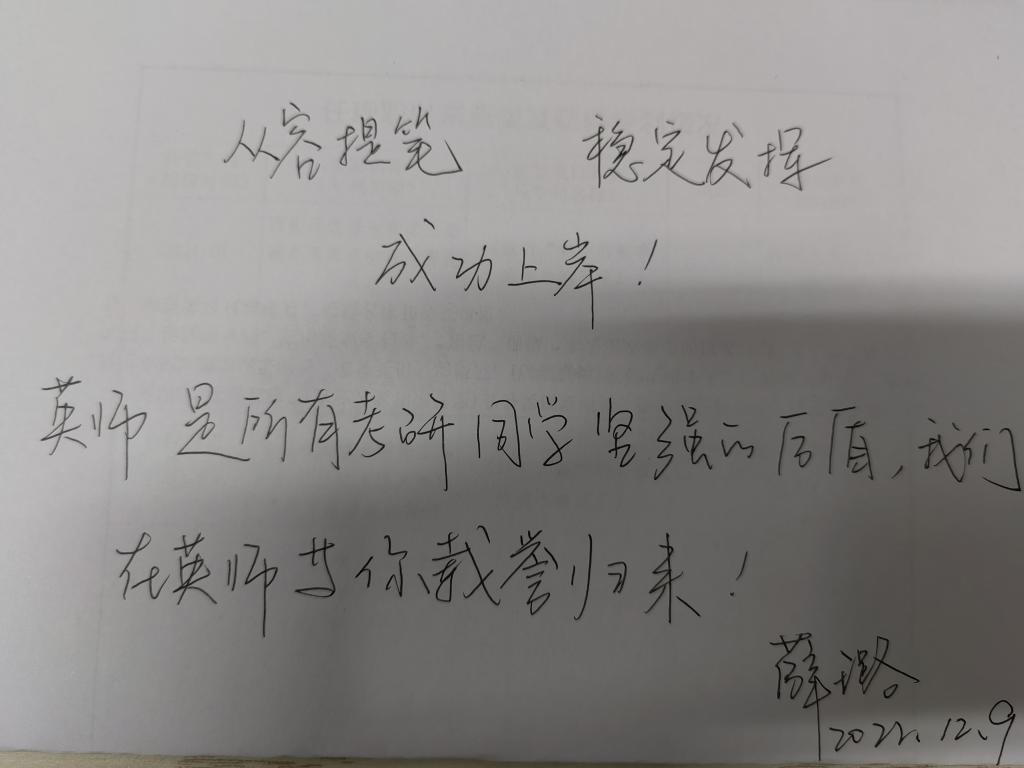 从容提笔 稳定发挥
成功上岸!
英师是所有考研同学坚强的后盾,我们
在英师等你载誉归来!
薛璐
2022.12.9